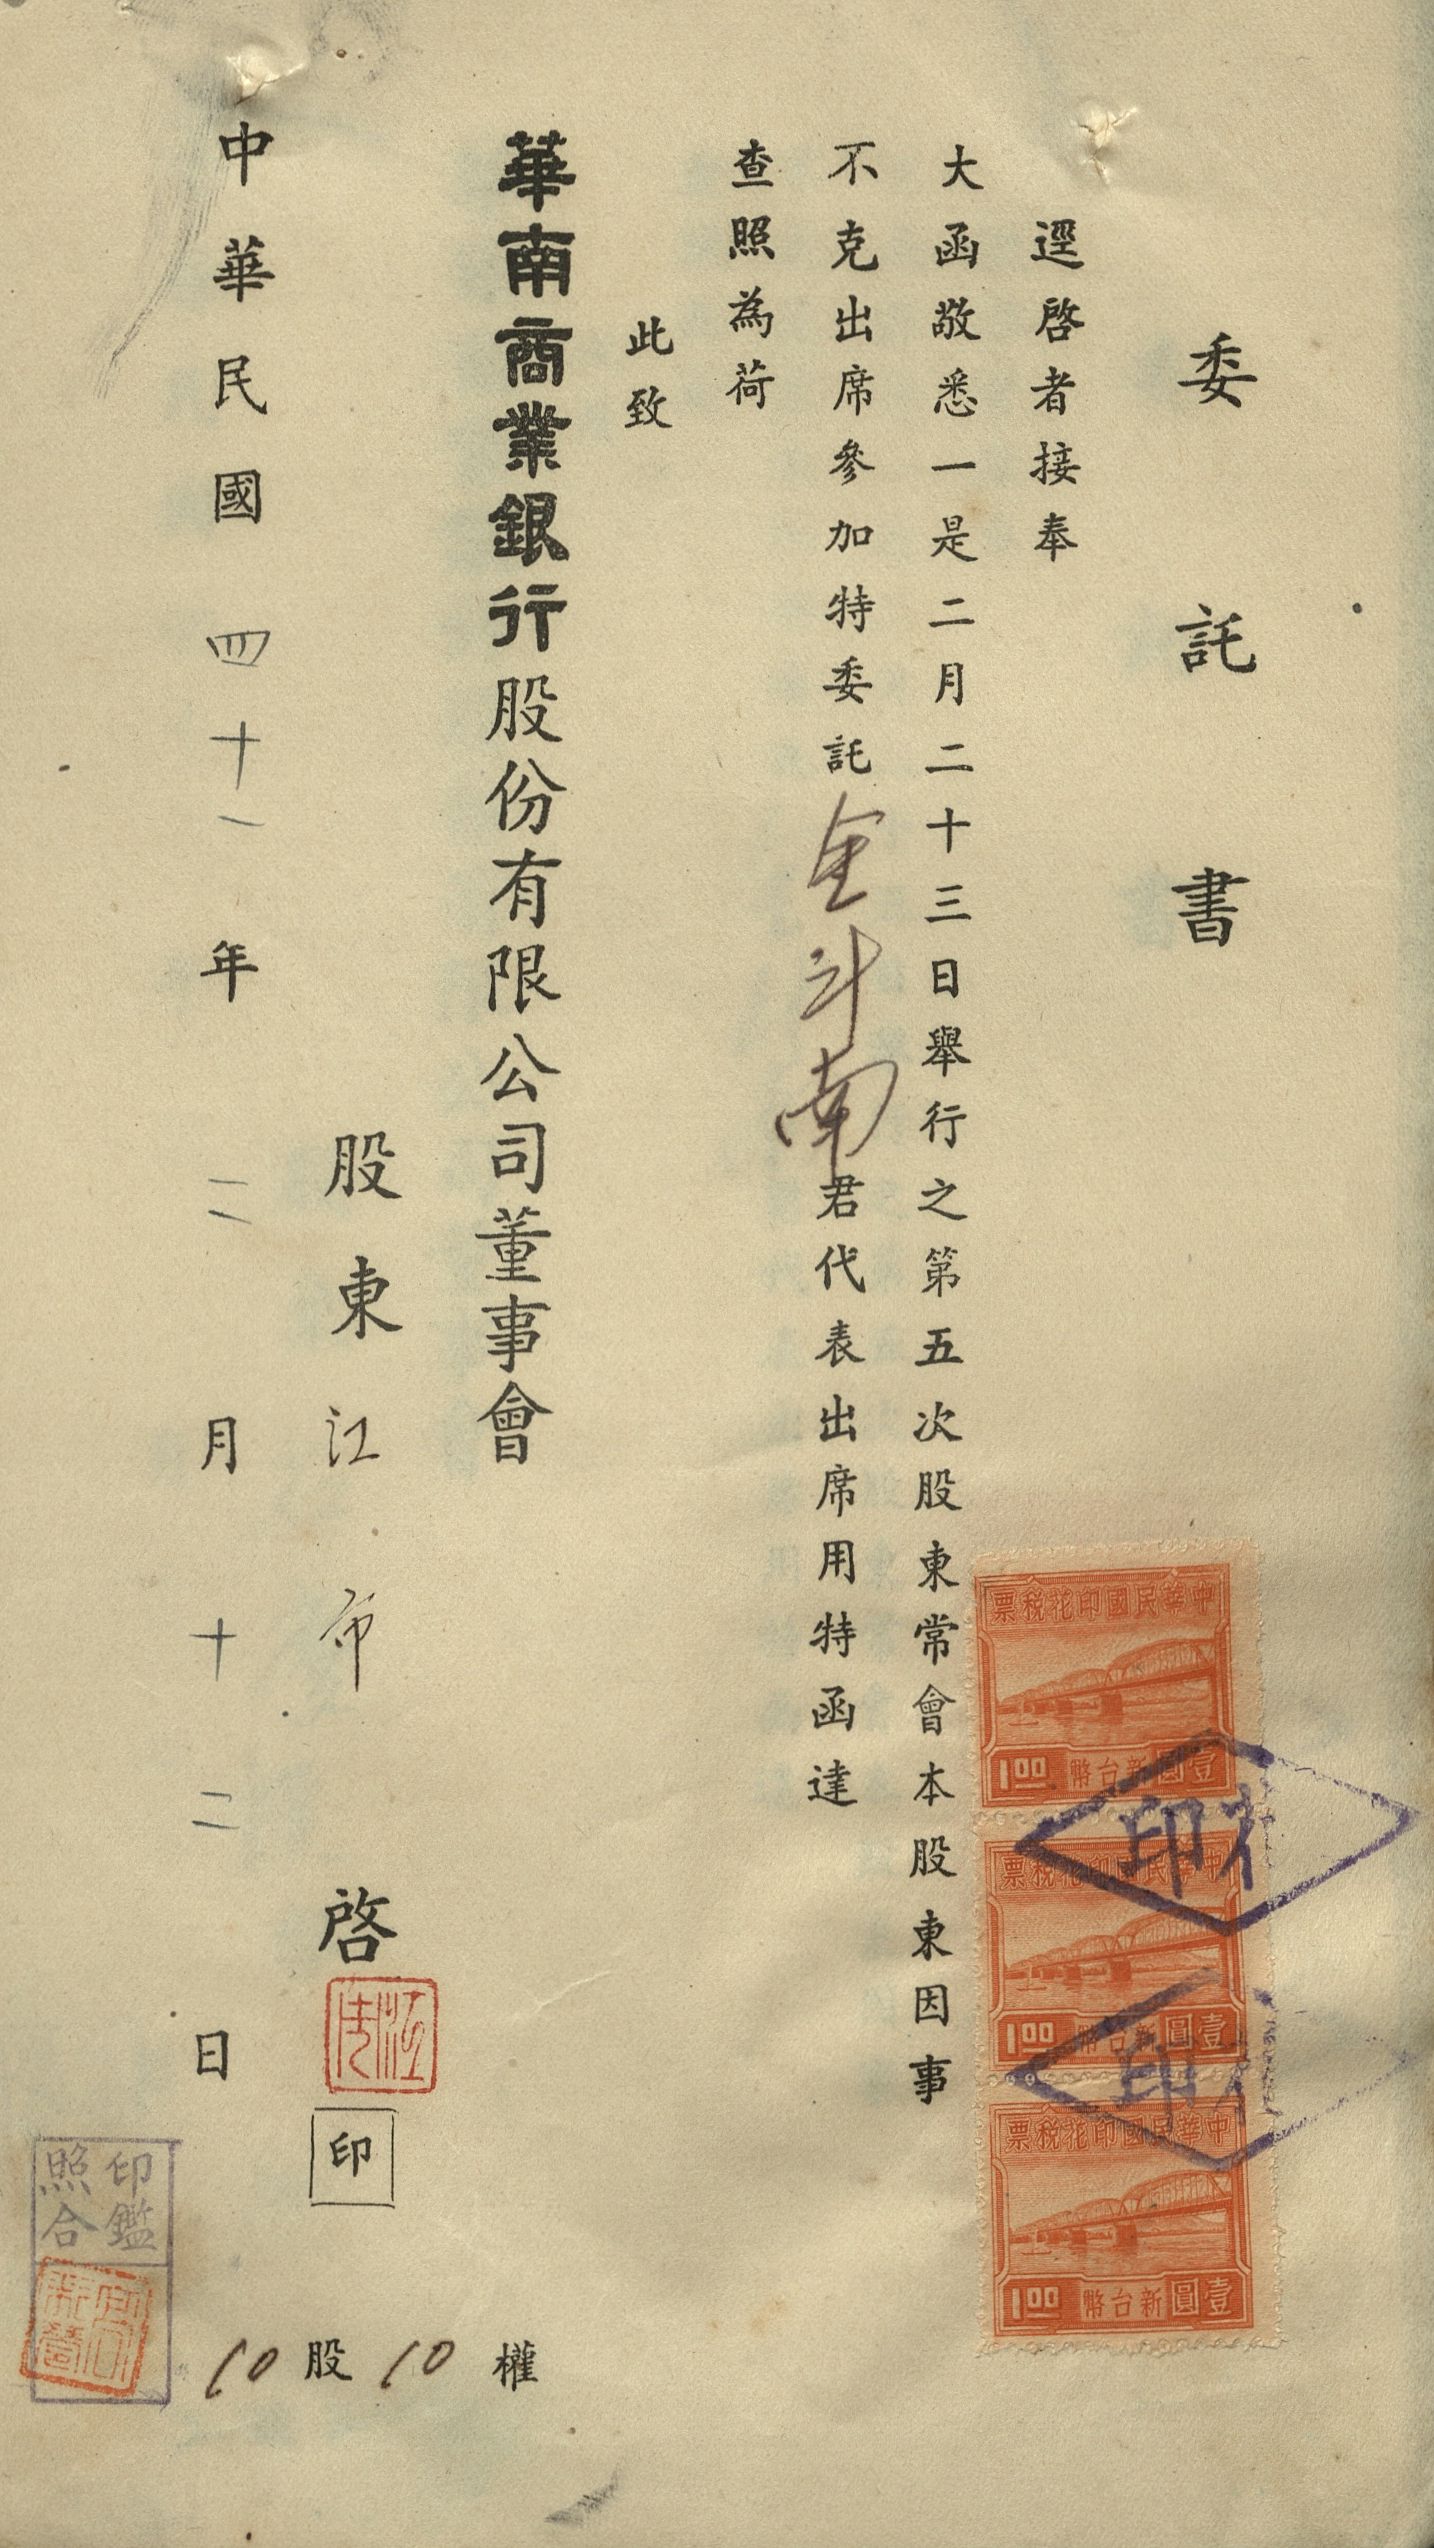 委託書
逕啓者接奉
大函敬悉一是二月二十三日舉行之第五次股東常會本股東因事
不克出席參加特委託金斗南君代表出席用特函達
查照為荷
此致
華南商業銀行股份有限公司董事會
股東江市啓
印
中華民國四十一年二月十二日
10股10權
印鑑
照合
中華民國印花稅票
壹圓新台幣
1.00
中華民國印花稅票
壹圓新台幣
1.00
中華民國印花稅票
壹圓新台幣
1.00